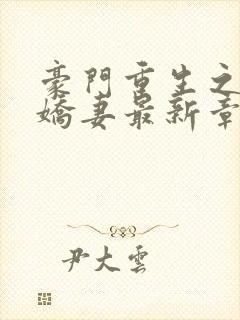 豪門重生之
嬌妻最新章
尹大雲